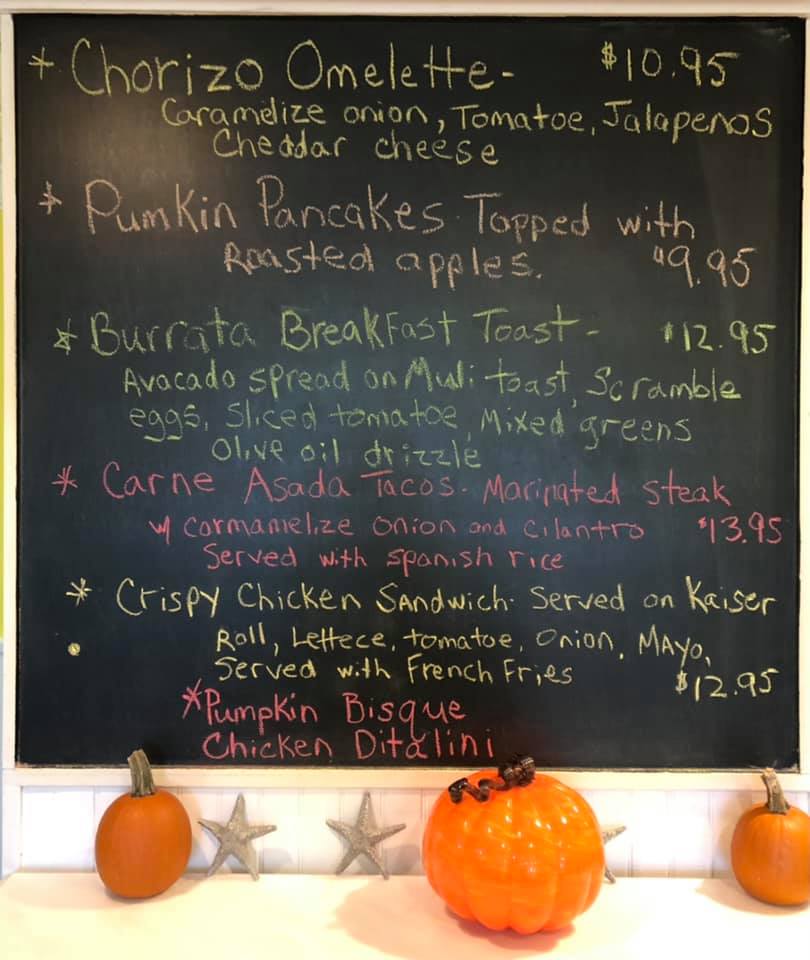 * Chorizo Omelette- $10.95
Caramelize onion, Tomatoe, Jalapenos
Cheddar cheese
* Pumkin Pancakes. Topped with
Roasted apples. $9.95
* Burrata BreakFast Toast- $12.95
Avocado spread on Multi toast, Scramble
eggs, Sliced tomatoe, Mixed greens
Olive oil drizzle
* Carne Asada Tacos. Marinated steak
w/ cormamelize onion and cilantro $13.95
Served with spanish rice
* Crispy Chicken Sandwich. Served on Kaiser
Roll, Lettece, tomatoe, onion, MAYO,
Served with French Fries $12.95
*Pumpkin Bisque
Chicken Ditalini